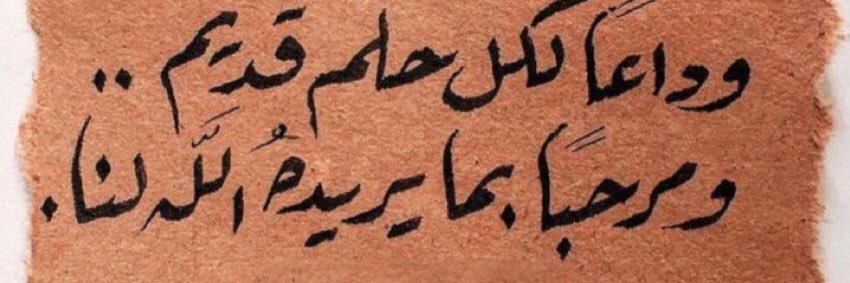 وداعاً لكل حلم قديم ..
ومرحباً بما يريدهُ اللَّه لنا.